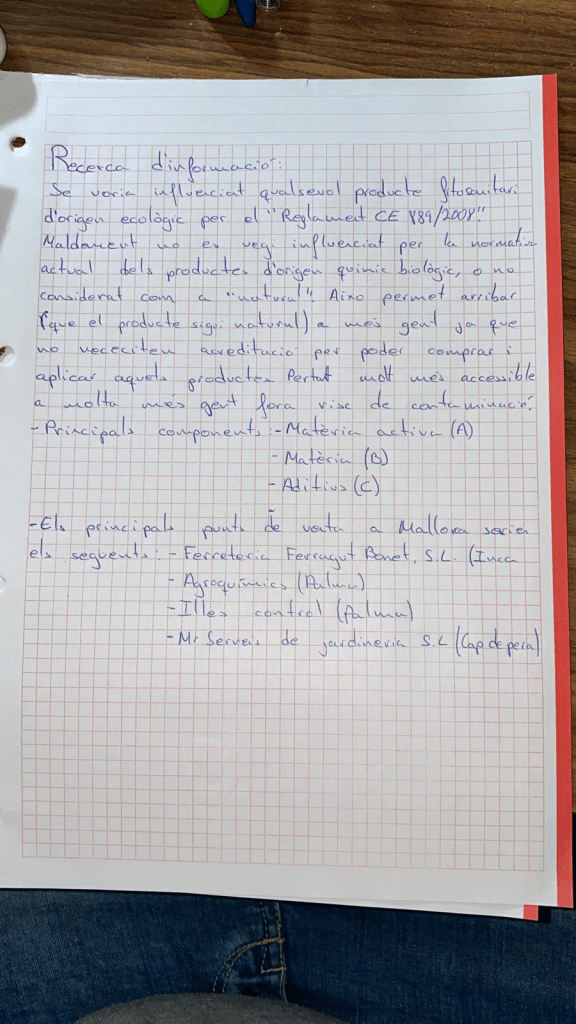 Recerca d'informació:
Se voria influenciat qualsevol producte fitosanitari
d'origen ecològic per el "Reglament CE 889/2008".
Maldament no es vegi influenciat per la normativa
actual dels productes d'origen quimic biològic, o no
considerat com a "natural". Aixo permet arribar
(que el producte sigui natural) a mes gent ja que
no necesiten acreditació per poder comprar i
aplicar aquels productes. Pertat molt més accessible
a molta mes gent fora risc de contaminació.
- Principals components: - Matèria activa (A)
- Matèria (B)
- Aditius (C)
- Els principals punts de venta a Mallorca serien
els seguents: - Ferreteria Ferragut Bonet, S.L. (Inca
- Agroquímics (Palma)
- Illes control (Palma)
- Mr Serveis de jardineria S.L (Capdepera)